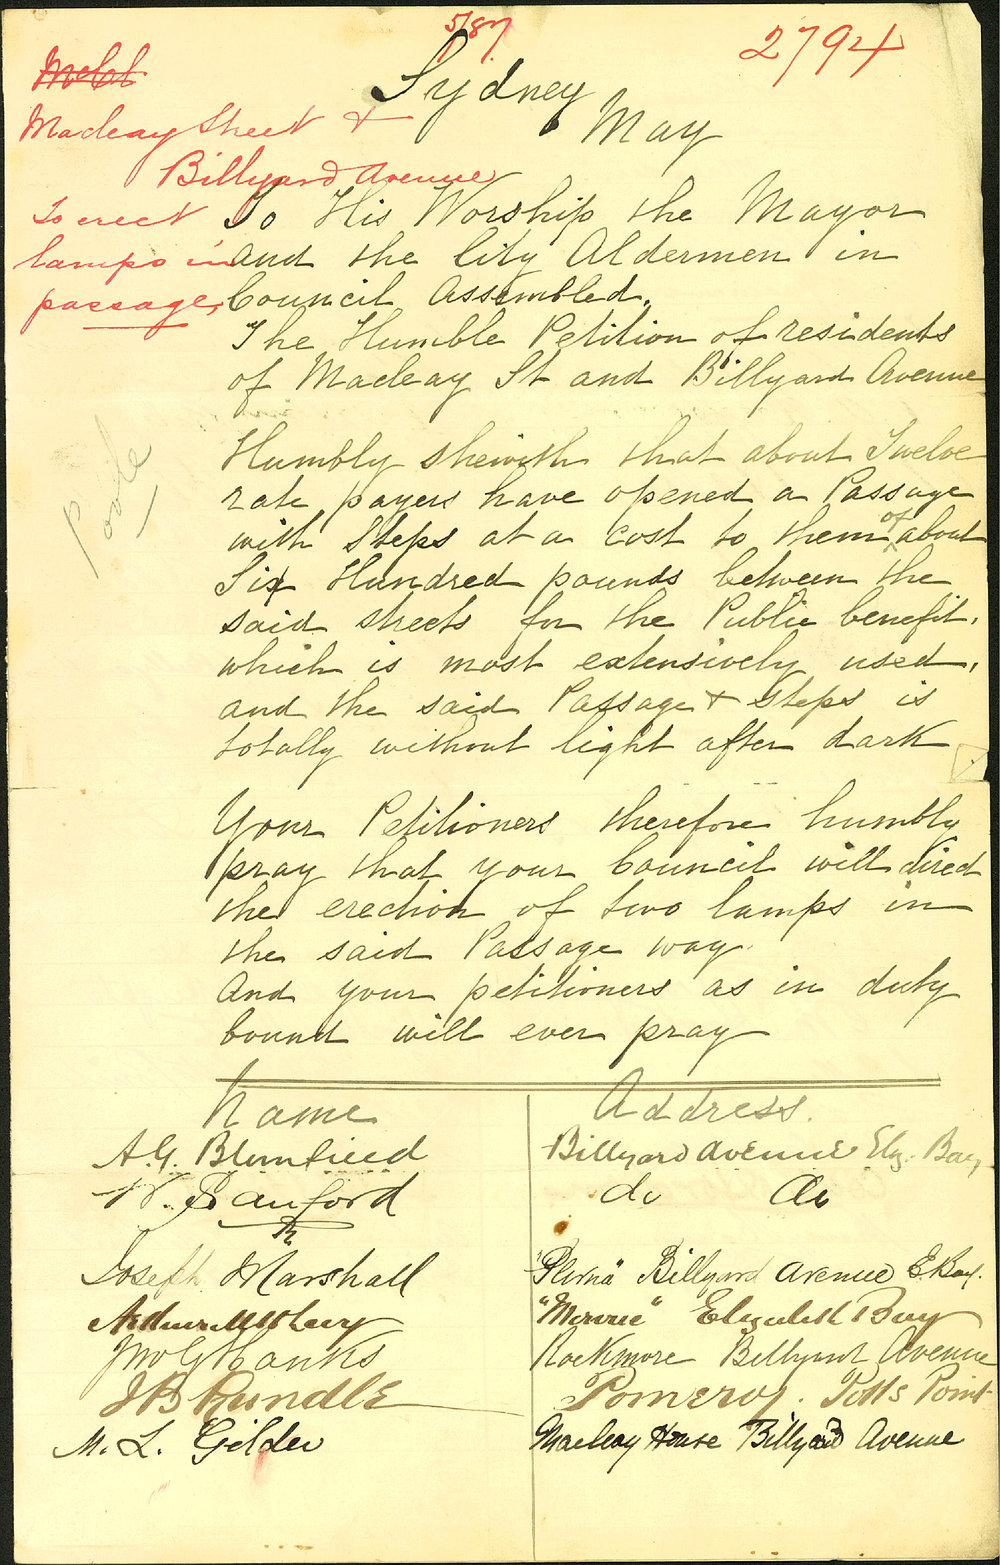 5/87
2794
Sydney
May
Macleay Street &
Billyard Avenue
To erect
lamps in
passage,
To His Worship the Mayor
and the City Aldermen in
Council Assembled.
The Humble Petition of residents
of Macleay St and Billyard Avenue
Humbly shewith that about Twelve
rate payers have opened a Passage
with Steps at a cost to them of about
Six Hundred pounds between the
said streets for the Public benefit,
which is most extensively used,
and the said Passage & steps is
totally without light after dark
Poole
Your Petitioners therefore humbly
pray that your Council will direct
the erection of two lamps in
the said Passage way.
And your petitioners as in duty
bound will ever pray
Name Address.
A.G. Blomfield Billyard Avenue Elz. Bay
do do
Joseph Marshall "Plevna" Billyard Avenue E. Bay.
Elizabeth Bay
Jno G Hanks Rockmore Billyard Avenue
J B Rundle Pomeroy. Potts Point
M. L. Gilder Macleay House Billyard Avenue